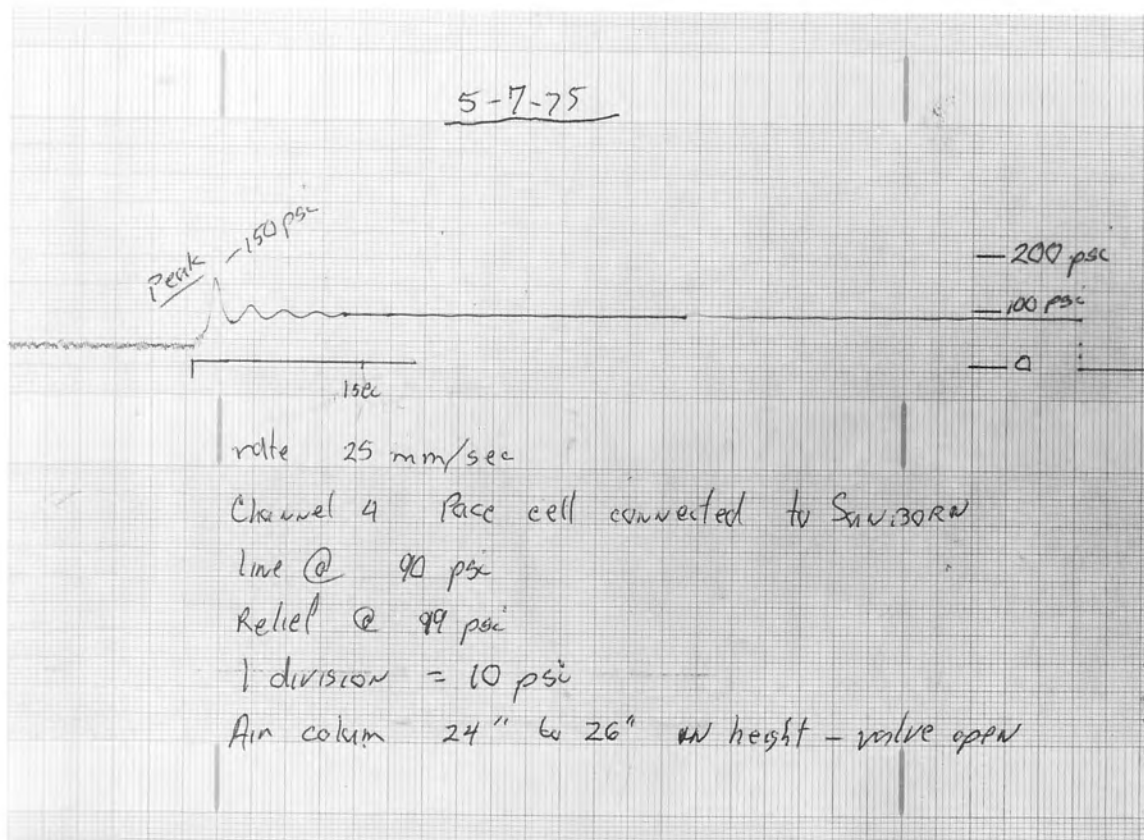 5-7-75
Peak - 150 psi
— 200 psi
— 100 psi
— 0
1 sec
rate 25 mm/sec
Channel 4 Pace cell connected to SANBORN
Line @ 90 psi
Relief @ 99 psi
1 division = 10 psi
Air colum 24" to 26" IN height - valve open